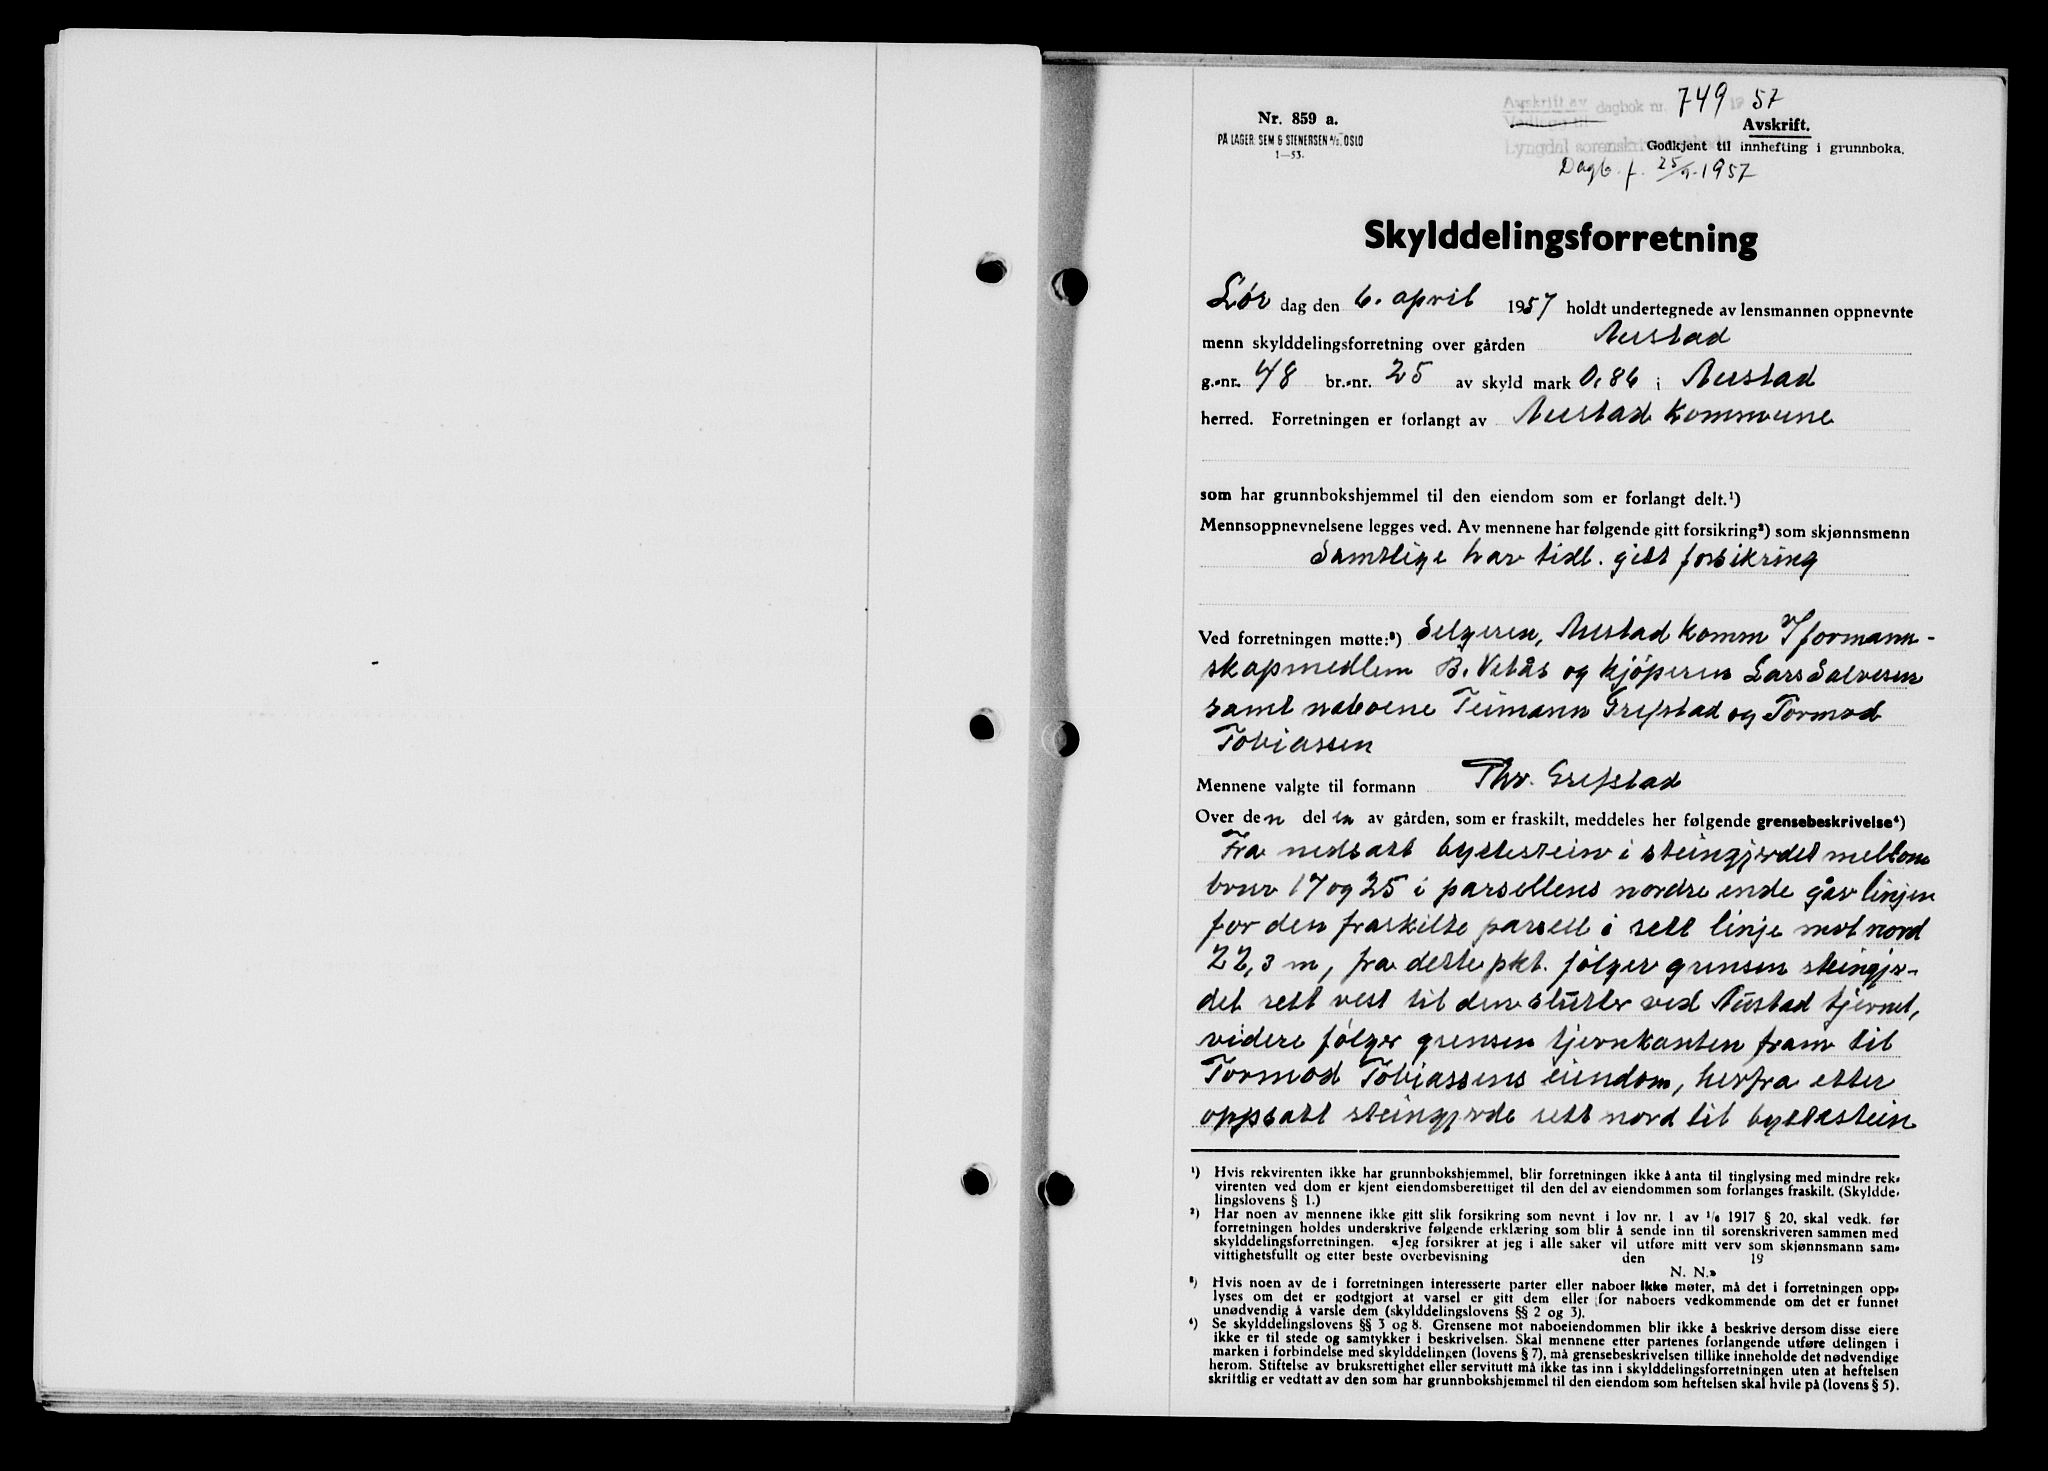 Nr. 859 a.
PÅ LAGER. SEM & STENERSEN A/S. OSLO
1—53.
Avskrift av dagbok nr. 749 1957
Vedlegg til
Lyngdal sorenskriverembede
Avskrift.
Godkjent til innhefting i grunnboka.
Dagb. f. 25/4.1957
Skylddelingsforretning
Lør dag den 6. april 1957 holdt undertegnede av lensmannen oppnevnte
menn skylddelingsforretning over gården Austad
g.-nr. 48 br.-nr. 25 av skyld mark 0,86 i Austad
herred. Forretningen er forlangt av Austad kommune
som har grunnbokshjemmel til den eiendom som er forlangt delt.¹)
Mennsoppnevnelsene legges ved. Av mennene har følgende gitt forsikring²) som skjønnsmenn
Samtlige har tidl. gitt forsikring
Ved forretningen møtte:³) Selgeren, Austad komm v/formann-
skapmedlem B. Vetås og kjøperen Lars Salvesen
samt naboene Teimann Grefstad og Tormod
Tobiassen
Mennene valgte til formann Thv. Grefstad
Over den delen av gården, som er fraskilt, meddeles her følgende grensebeskrivelse⁴)
Fra nedsatt byttestein i steingjerdet mellom
bruv 17 og 25 i parsellens nordre ende går linjen
for den fraskilte parsell i rett linje mot nord
22,3 m, fra dette pkt. følger grensen steingjer-
det rett vest til den slutter ved Austad tjernet,
videre følger grensen tjernkanten fram til
Tormod Tobiassens eiendom, herfra etter
oppsatt steingjerde rett nord til byttestein
¹) Hvis rekvirenten ikke har grunnbokshjemmel, blir forretningen ikke å anta til tinglysing med mindre rek-
virenten ved dom er kjent eiendomsberettiget til den del av eiendommen som forlanges fraskilt. (Skyldde-
lingslovens § 1.)
²) Har noen av mennene ikke gitt slik forsikring som nevnt i lov nr. 1 av 1/6 1917 § 20, skal vedk. før
forretningen holdes underskrive følgende erklæring som blir å sende inn til sorenskriveren sammen med
skylddelingsforretningen. «Jeg forsikrer at jeg i alle saker vil utføre mitt verv som skjønnsmann sam-
vittighetsfullt og etter beste overbevisning den 19
N. N.»
³) Hvis noen av de i forretningen interesserte parter eller naboer ikke møter, må det i forretningen opp-
lyses om det er godtgjort at varsel er gitt dem eller for naboers vedkommende om det er funnet
unødvendig å varsle dem (skylddelingslovens §§ 2 og 3).
⁴) Se skylddelingslovens §§ 3 og 8. Grensene mot naboeiendommen blir ikke å beskrive dersom disse eiere
ikke er til stede og samtykker i beskrivelsen. Skal mennene etter partenes forlangende utføre delingen i
marken i forbindelse med skylddelingen (lovens § 7), må grensebeskrivelsen tillike inneholde det nødvendige
herom. Stiftelse av bruksrettighet eller servitutt må ikke tas inn i skylddelingsforretningen uten at heftelsen
skriftlig er vedtatt av den som har grunnbokshjemmel til den eiendom som heftelsen skal hvile på (lovens § 5).